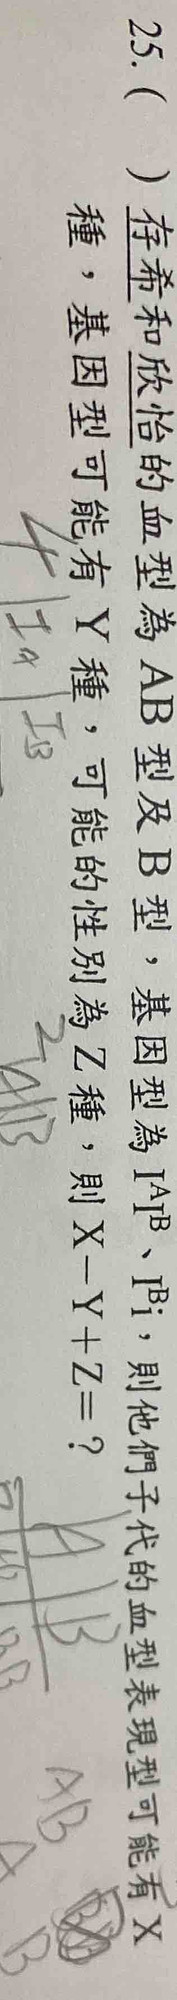 25. (　　) 存希和欣怡的血型為 AB 型及 B 型，基因型為 IᴬIᴮ、Iᴮi，則他們子代的血型表現型可能有 X
種，基因型可能有 Y 種，可能的性別為 Z 種，則 X－Y＋Z＝？
4 IA IB
2
A B
AB
A B